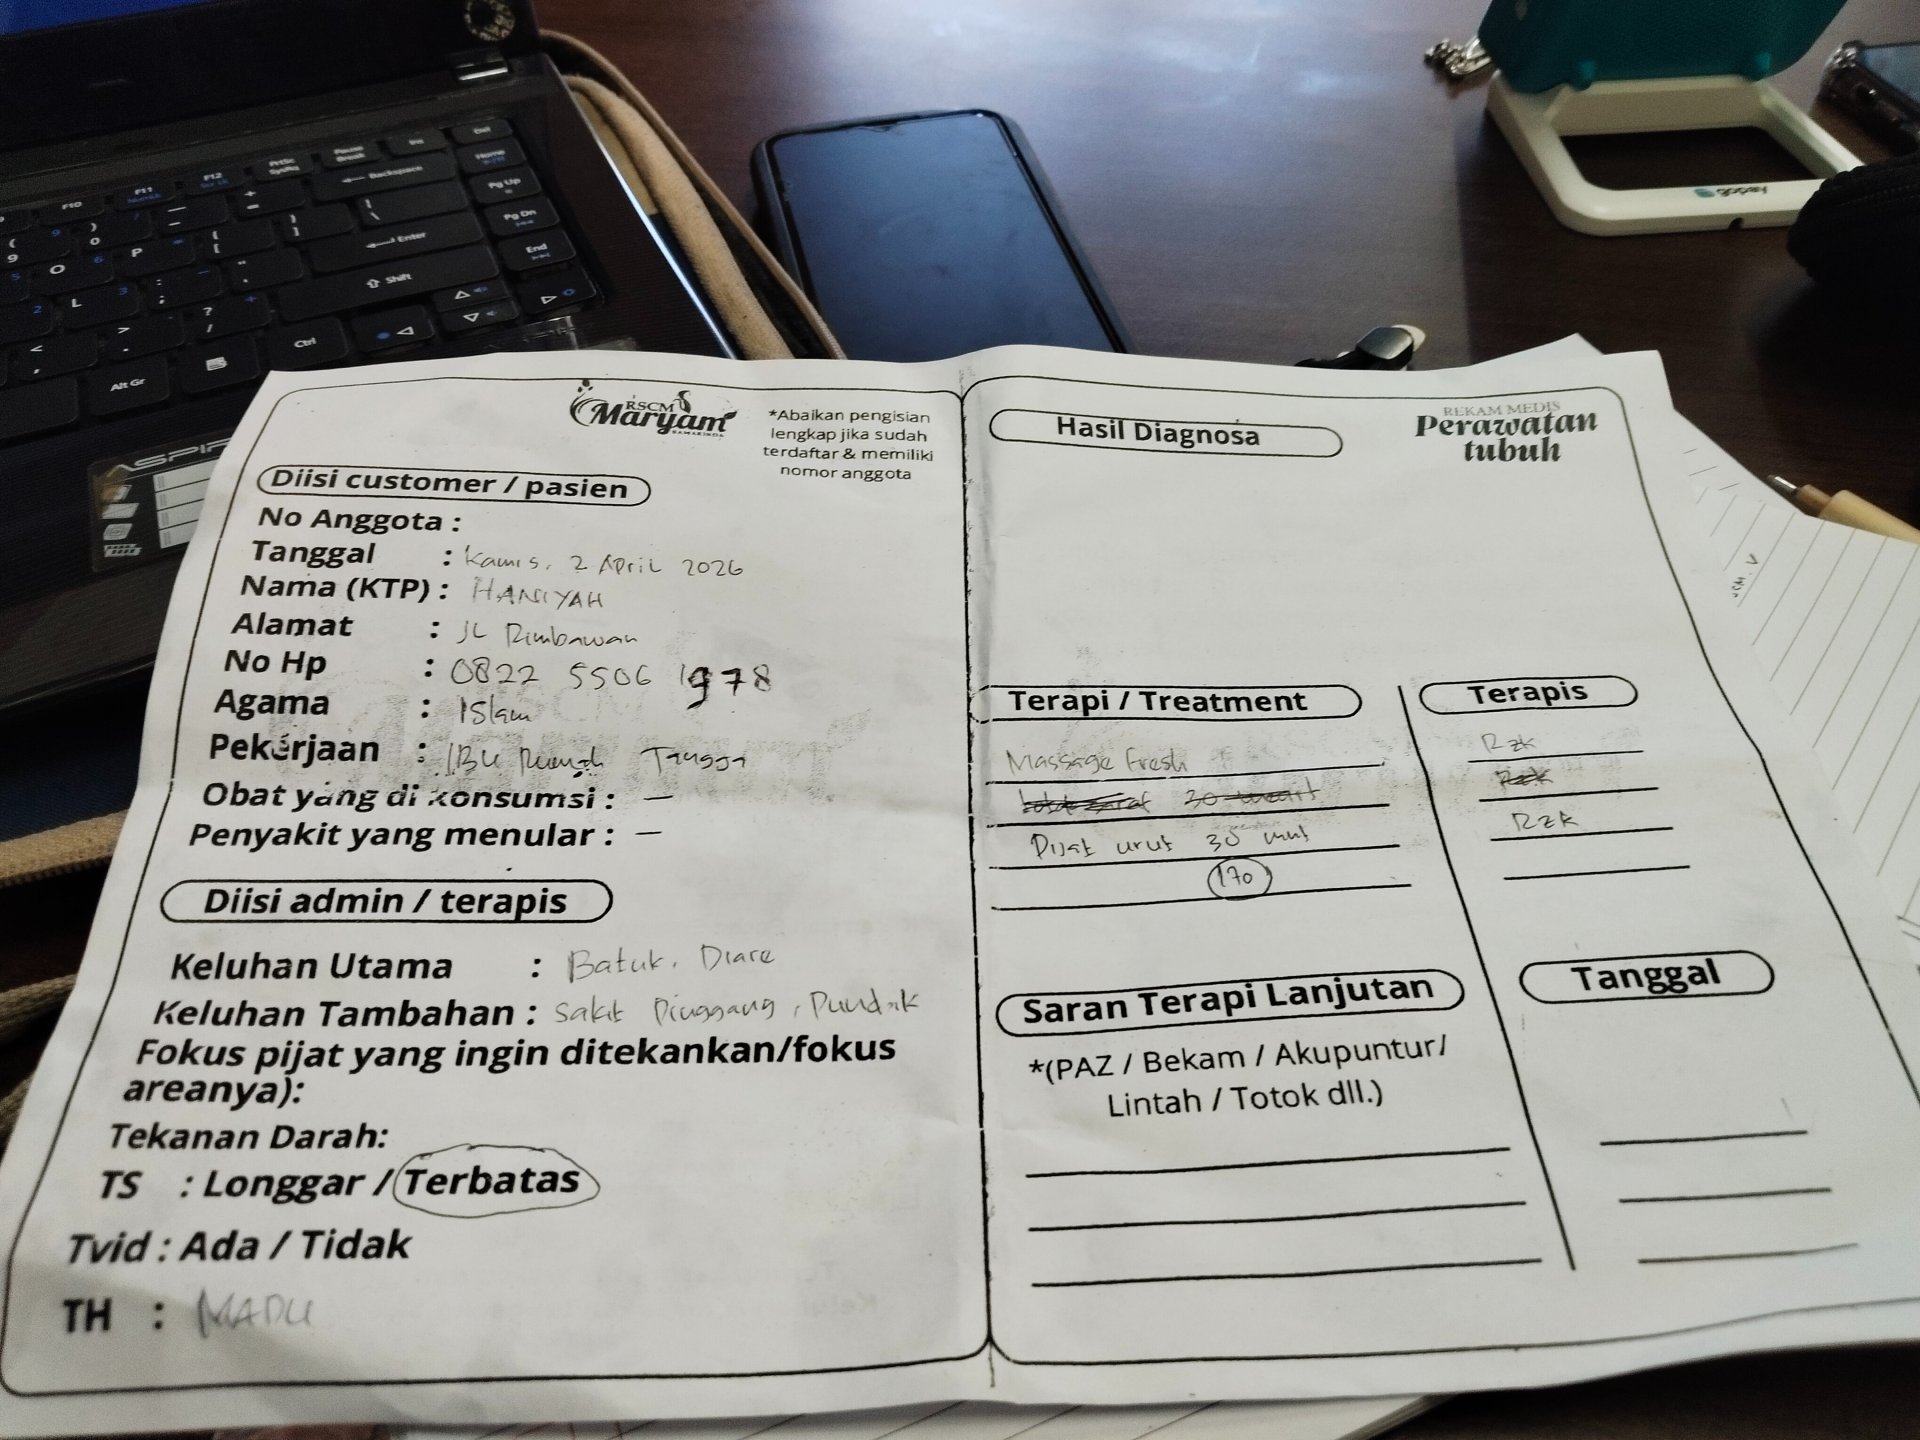 RSCM
Maryam
SAMARINDA
*Abaikan pengisian
lengkap jika sudah
terdaftar & memiliki
nomor anggota
Diisi customer / pasien
No Anggota :
Tanggal : Kamis, 2 April 2026
Nama (KTP) : HANIYAH
Alamat : JL Rimbawan
No Hp : 0822 5506 1978
Agama : Islam
Pekerjaan : IBU Rumah Tangga
Obat yang di konsumsi : —
Penyakit yang menular : —
Diisi admin / terapis
Keluhan Utama : Batuk, Diare
Keluhan Tambahan : Sakit Pinggang, Pundak
Fokus pijat yang ingin ditekankan/fokus
areanya):
Tekanan Darah:
TS : Longgar / Terbatas
Tvid : Ada / Tidak
TH : MADU
Hasil Diagnosa
REKAM MEDIS
Perawatan
tubuh
Terapi / Treatment
Terapis
Massage Fresh
Rzk
30
Pijat urut 30 mnt
Rzk
170
Saran Terapi Lanjutan
Tanggal
*(PAZ / Bekam / Akupuntur/
Lintah / Totok dll.)
F10
F11
F12
PrtSc
SysRq
Pause
Break
Ins
Del
Backspace
Home
Pg Up
Pg Dn
End
Enter
Shift
Ctrl
Alt Gr
O
P
L
ASPIR